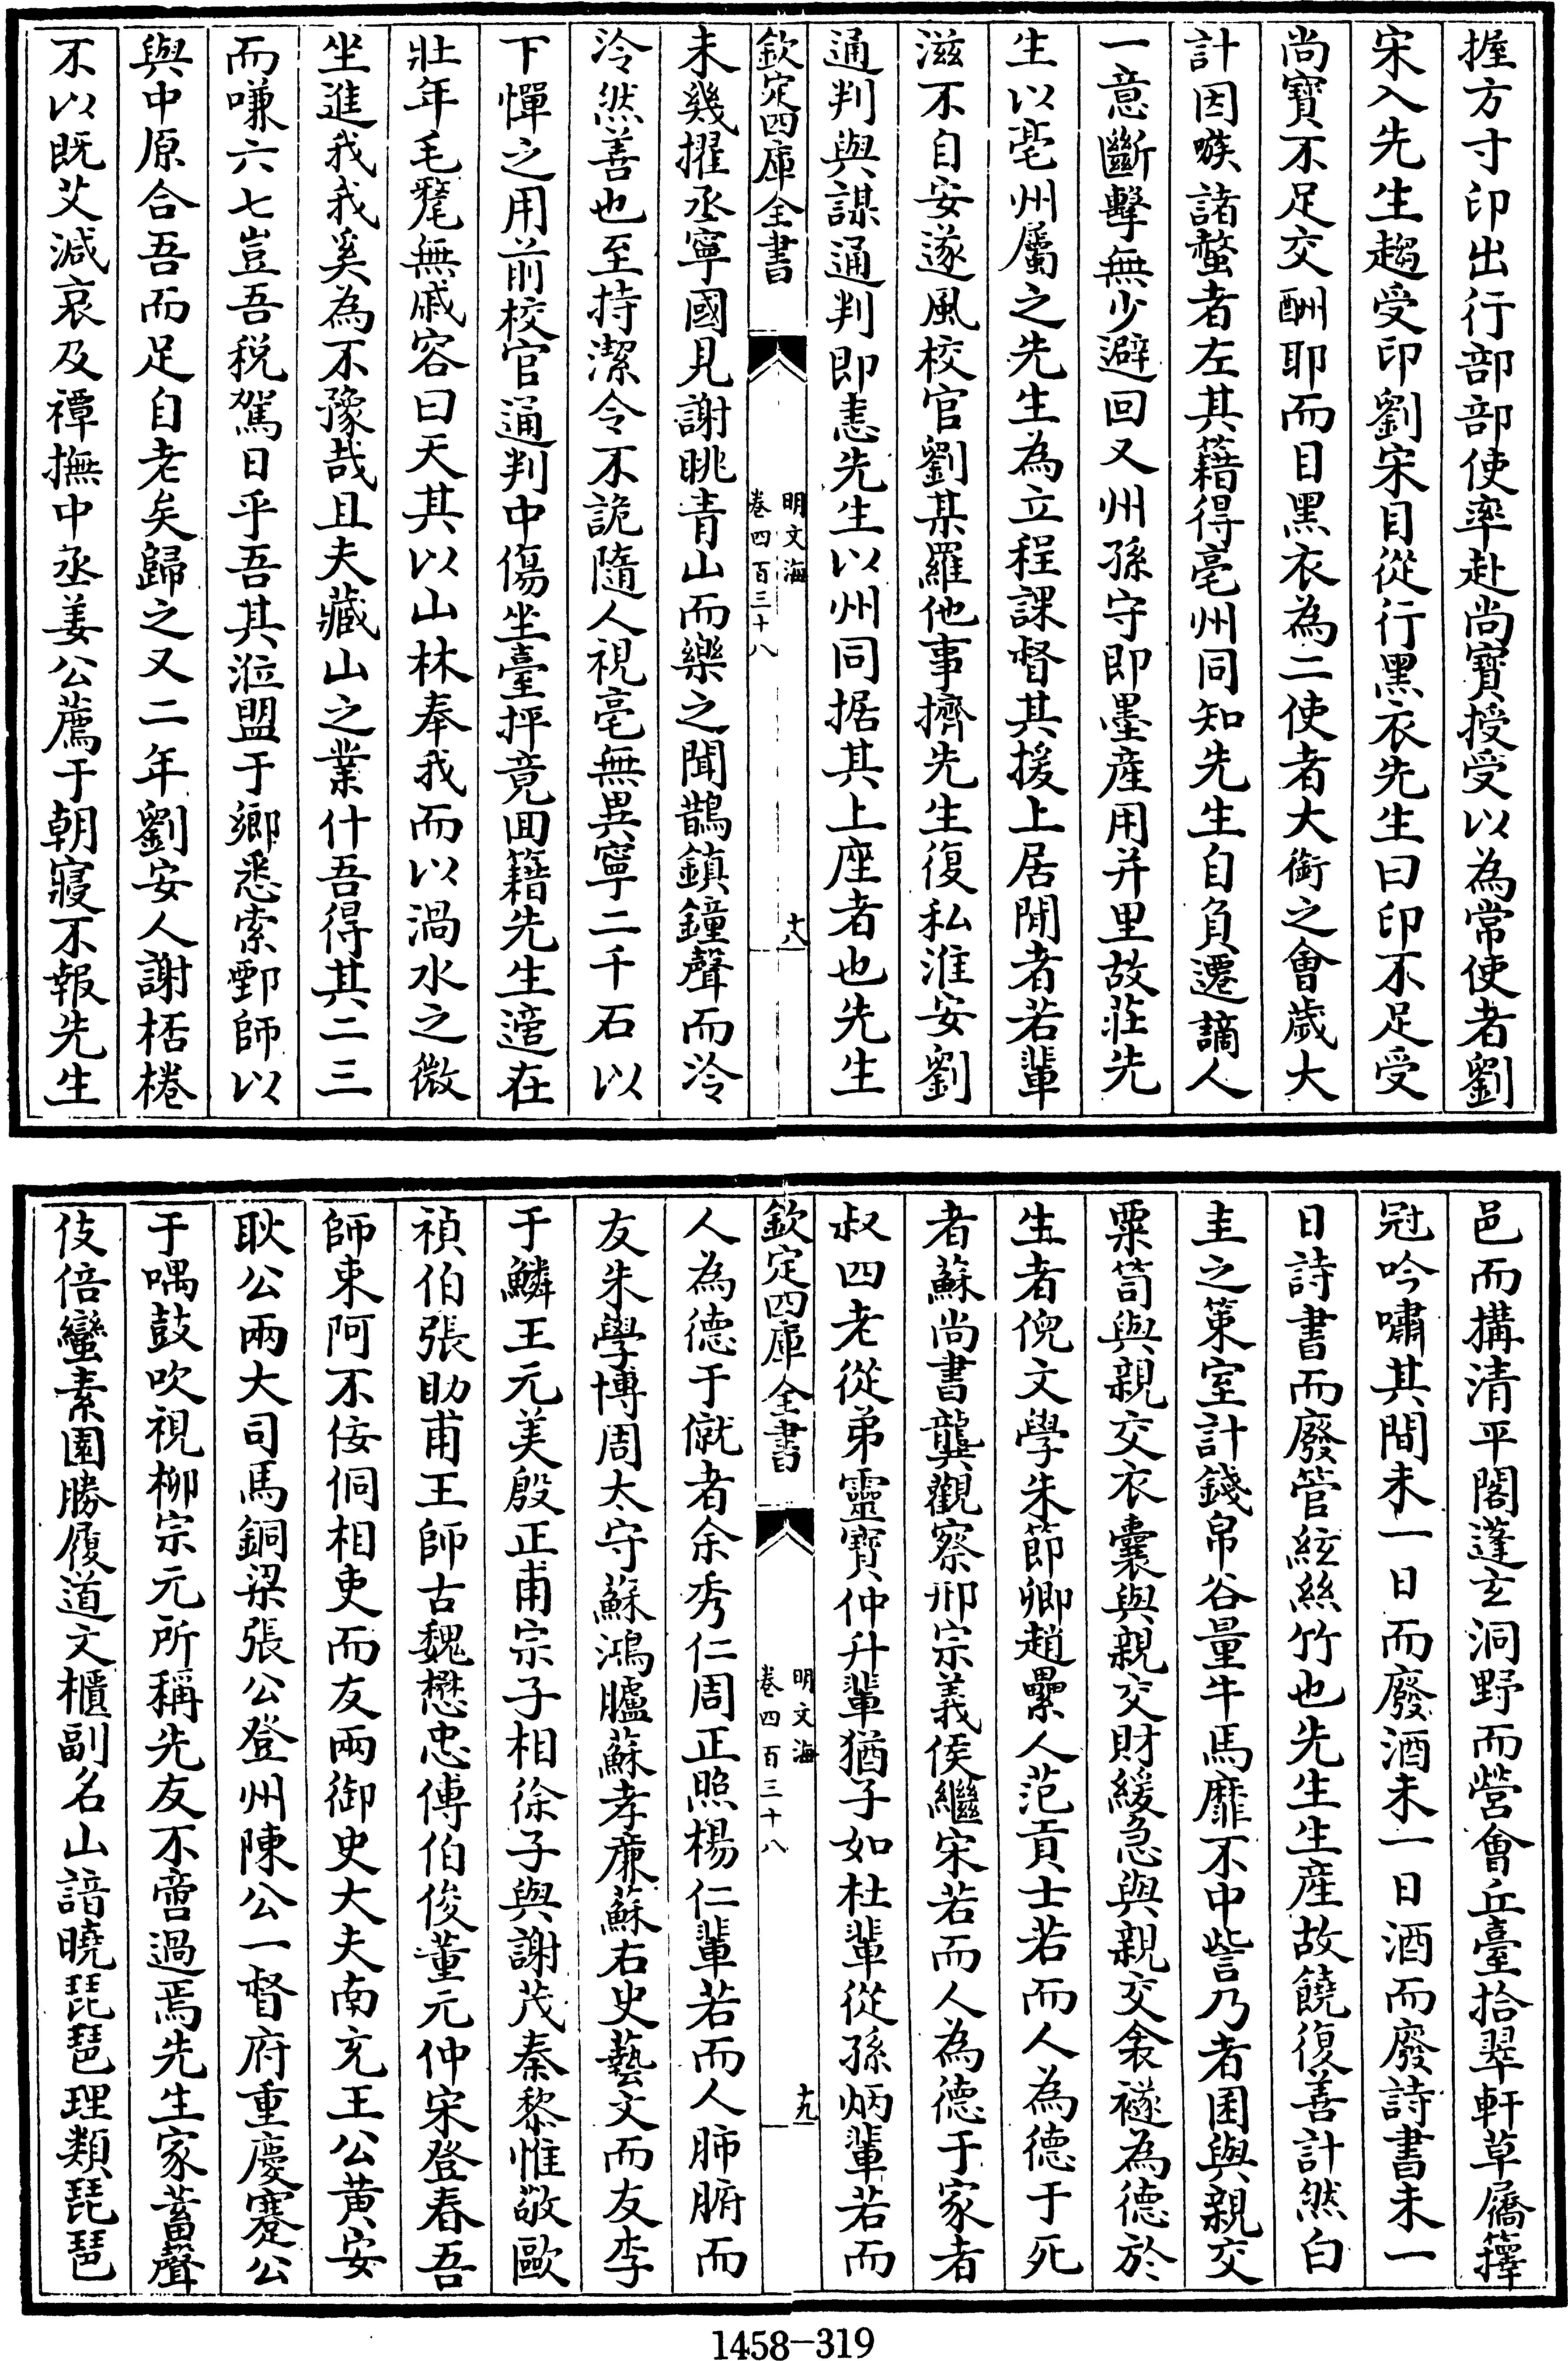 握方寸印出行部部使率赴尚寶授受以為常使者劉
宋入先生趨受印劉宋目從行黑衣先生曰印不足受
尚寶不足交酬耶而目黑衣為二使者大銜之會歲大
計因嗾諸螫者左其籍得亳州同知先生自負遷謫人
一意斷擊無少避回又州孫守即墨産用并里故莊先
生以亳州屬之先生為立程課督其援上居閒者若輩
滋不自安遂風校官劉某羅他事擠先生復私淮安劉
通判與謀通判即恚先生以州同据其上座者也先生
欽定四庫全書
明文海
卷四百三十八
十八
未幾擢丞寧國見謝眺青山而樂之聞鵲鎮鐘聲而泠
泠然善也至持潔令不詭隨人視亳無異寧二千石以
下憚之用前校官通判中傷坐臺抨竟囬籍先生遌在
壯年毛氂無戚容曰天其以山林奉我而以渦水之微
坐進我我奚為不豫哉且夫藏山之業什吾得其二三
而嗛六七豈吾税駕日乎吾其涖盟于鄉悉索鄄師以
與中原合吾而足自老矣歸之又二年劉安人謝桮棬
不以既艾減哀及禫撫中丞姜公薦于朝寢不報先生
邑而搆清平閣蓬玄洞野而營會丘臺拾翠軒草屩籜
冠吟嘯其間未一日而廢酒未一日酒而廢詩書未一
日詩書而廢管絃絲竹也先生生産故饒復善計然白
圭之策室計錢帛谷量牛馬靡不中訾乃者囷與親交
粟笥與親交衣囊與親交財緩急與親交衾襚為德於
生者倪文學朱節卿趙纍人范貢士若而人為德于死
者蘇尚書龔觀察邢宗義侯繼宋若而人為德于家者
叔四老從弟靈寶仲升輩猶子如杜輩從孫炳輩若而
欽定四庫全書
明文海
卷四百三十八
十九
人為德于僦者余秀仁周正照楊仁輩若而人肺腑而
友朱學博周太守蘇鴻臚蘇孝廉蘇右史藝文而友李
于鱗王元美殷正甫宗子相徐子與謝茂秦黎惟敬歐
禎伯張助甫王師古魏懋忠傅伯俊董元仲宋登春吾
師東阿不佞侗相吏而友兩御史大夫南充王公黄安
耿公兩大司馬銅梁張公登州陳公一督府重慶蹇公
于喁鼓吹視柳宗元所稱先友不啻過焉先生家蓄聲
伎倍蠻素園勝履道文櫃副名山諳曉琵琶理類琵琶
1458-319